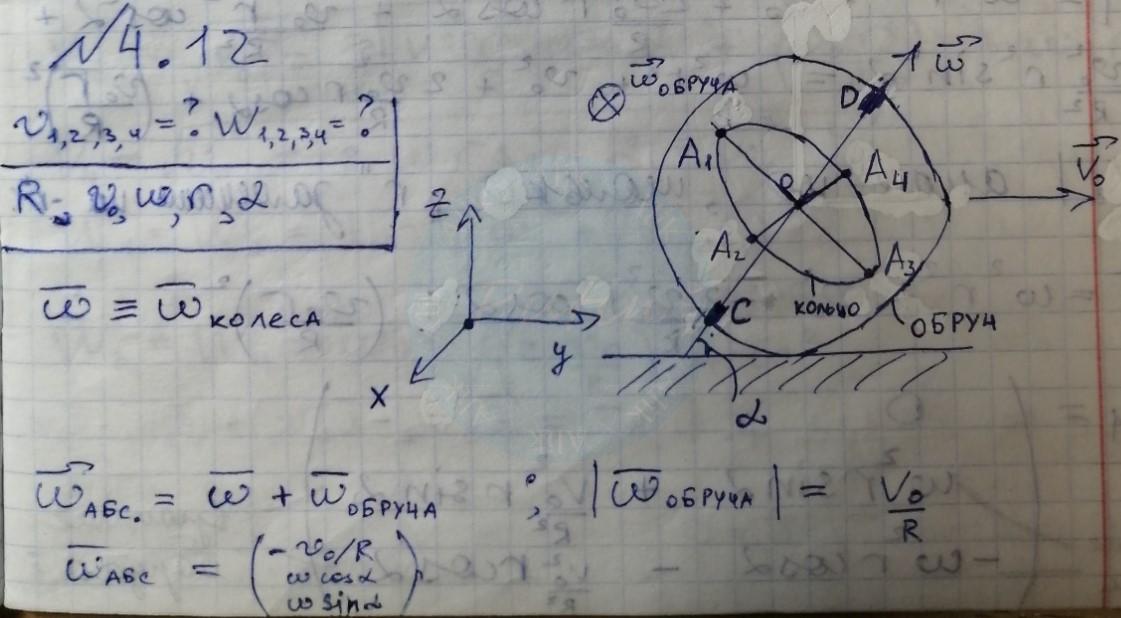 №4.12
v₁,₂,₃,₄ = ? W₁,₂,₃,₄ = ?
R, v₀, ω, r, α
ω̄ ≡ ω̄ КОЛЕСА
z
y
x
ω⃗ ОБРУЧА
ω⃗
D
A₁
A₄
V⃗₀
O
A₂
A₃
C
КОЛЬЦО
ОБРУЧ
α
ω⃗ АБС. = ω̄ + ω̄ ОБРУЧА ; |ω̄ ОБРУЧА| = V₀/R
ω̄ АБС = (-v₀/R
ω cos α
ω sin α)